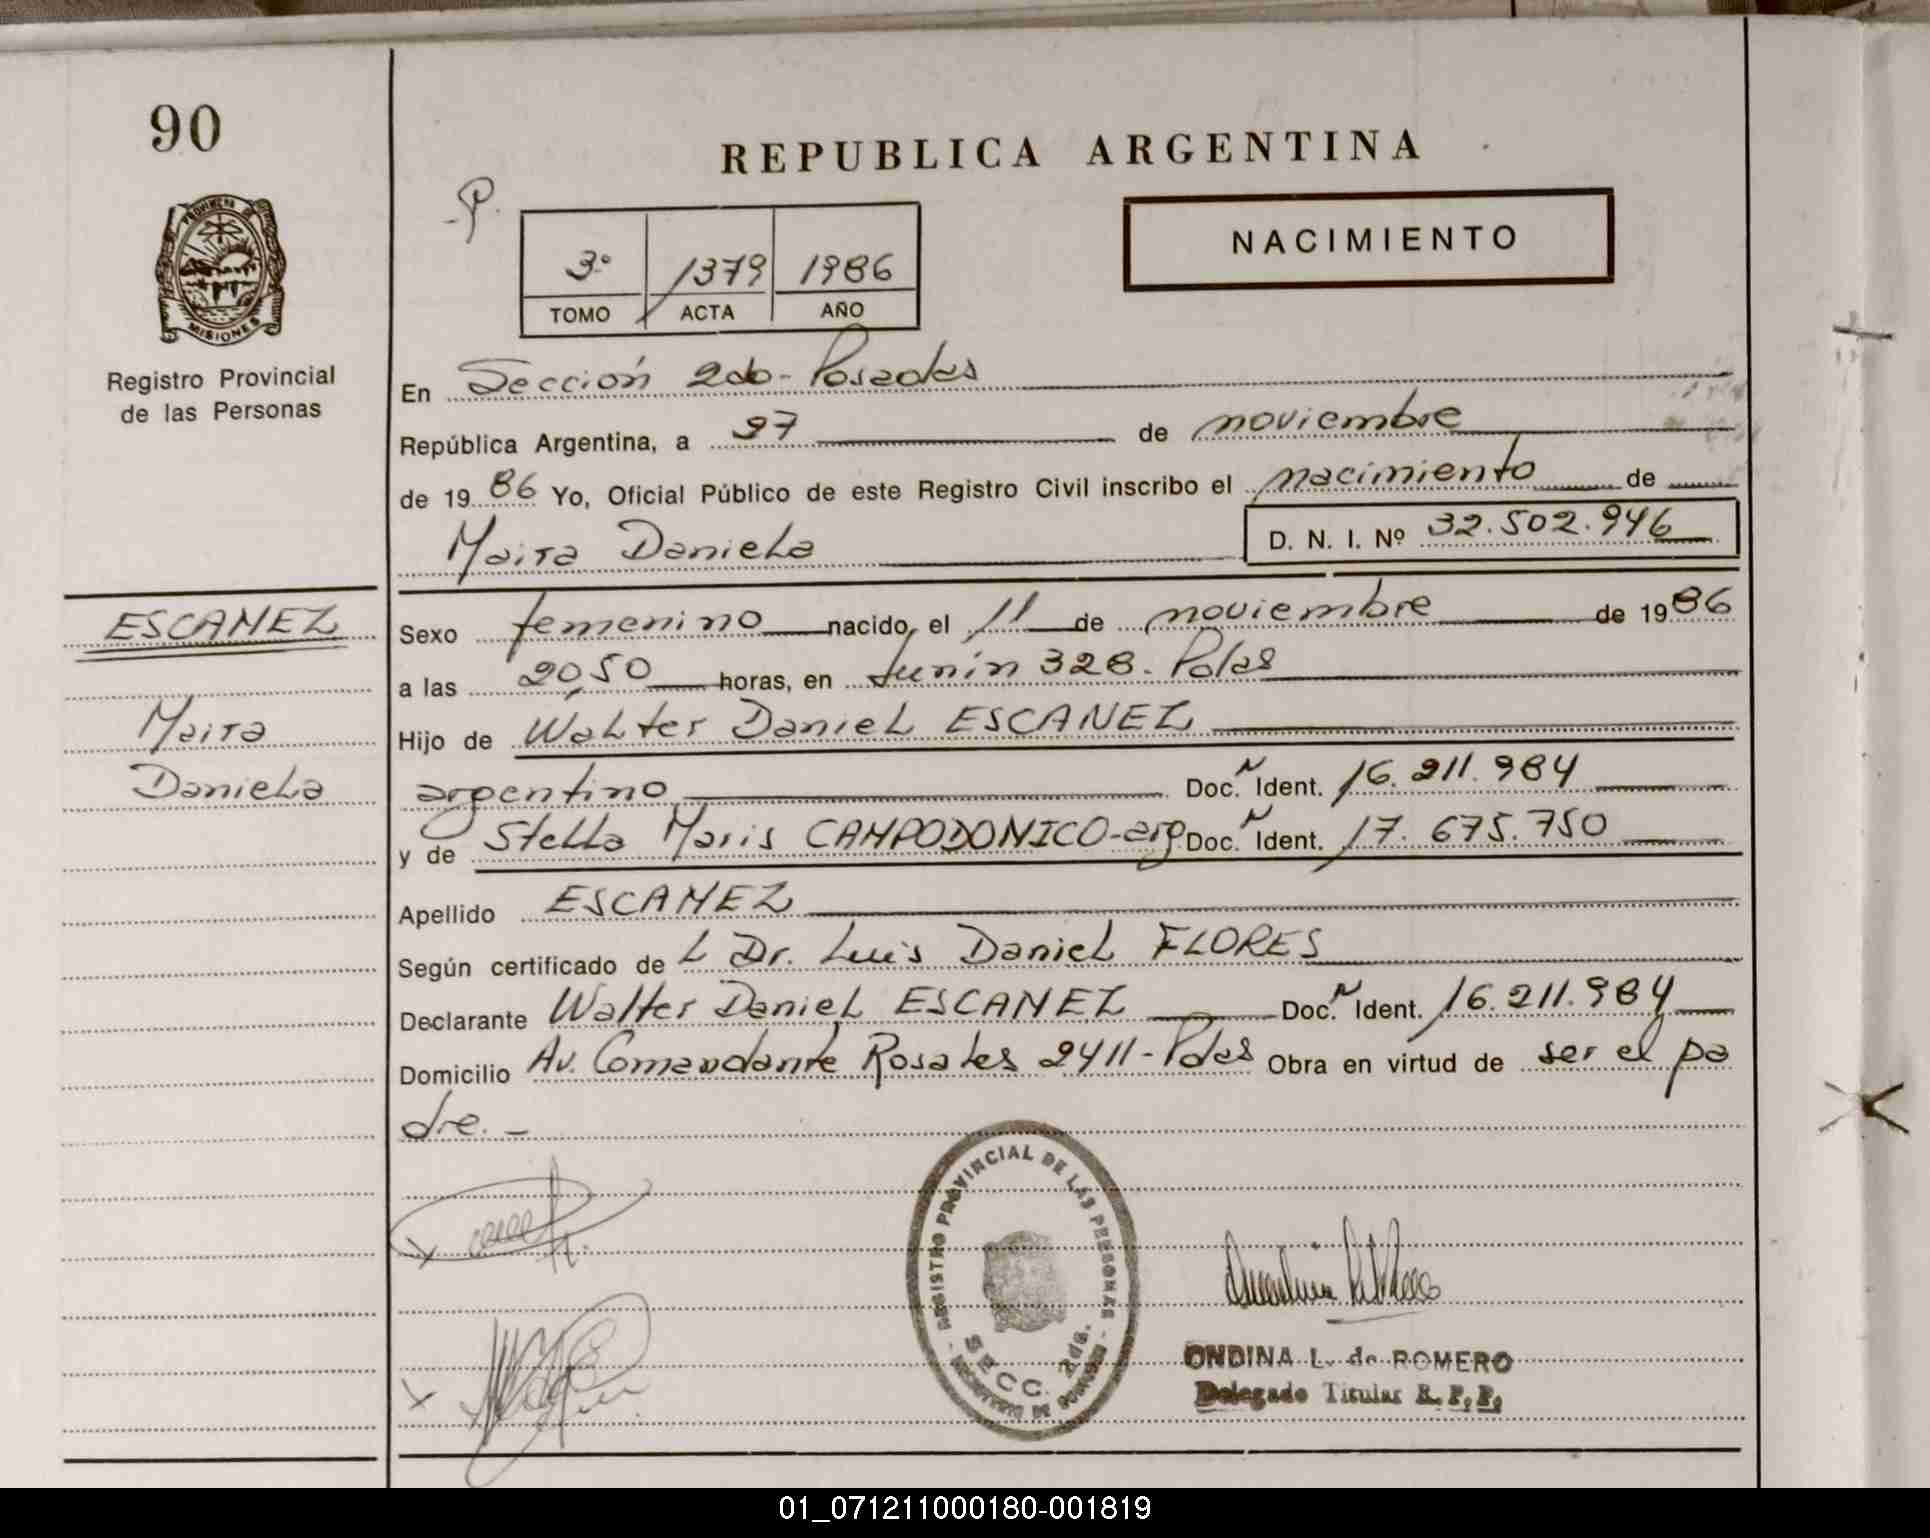 90
REPUBLICA ARGENTINA
PROVINCIA DE
MISIONES
Registro Provincial
de las Personas
NACIMIENTO
3º 1379 1986
TOMO ACTA AÑO
En Sección 2da - Posadas
República Argentina, a 27 de noviembre
de 1986 Yo, Oficial Público de este Registro Civil inscribo el nacimiento de
Maira Daniela D. N. I. Nº 32.502.946
ESCANEZ
Maira
Daniela
Sexo femenino nacido el 11 de noviembre de 1986
a las 20,50 horas, en Junín 328 - Pdas
Hijo de Walter Daniel ESCANEZ
argentino Doc. N Ident. 16.211.984
y de Stella Maris CAMPODONICO - arg. Doc. N Ident. 17.675.750
Apellido ESCANEZ
Según certificado de L Dr. Luis Daniel FLORES
Declarante Walter Daniel ESCANEZ Doc. N Ident. 16.211.984
Domicilio Av. Comandante Rosales 2411 - Pdas Obra en virtud de ser el pa
dre. -
REGISTRO PROVINCIAL DE LAS PERSONAS
SECC. 2da.
ONDINA L. de ROMERO
Delegado Titular R. P. P.
01_071211000180-001819